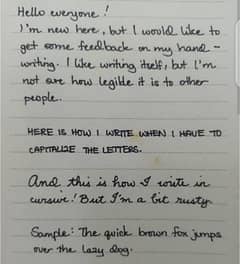 Hello everyone!
I'm new here, but I would like to
get some feedback on my hand-
writing. I like writing itself, but I'm
not sure how legible it is to other
people.
HERE IS HOW I WRITE WHEN I HAVE TO
CAPITALIZE THE LETTERS.
And this is how I write in
cursive! But I'm a bit rusty.
Sample: The quick brown fox jumps
over the lazy dog.